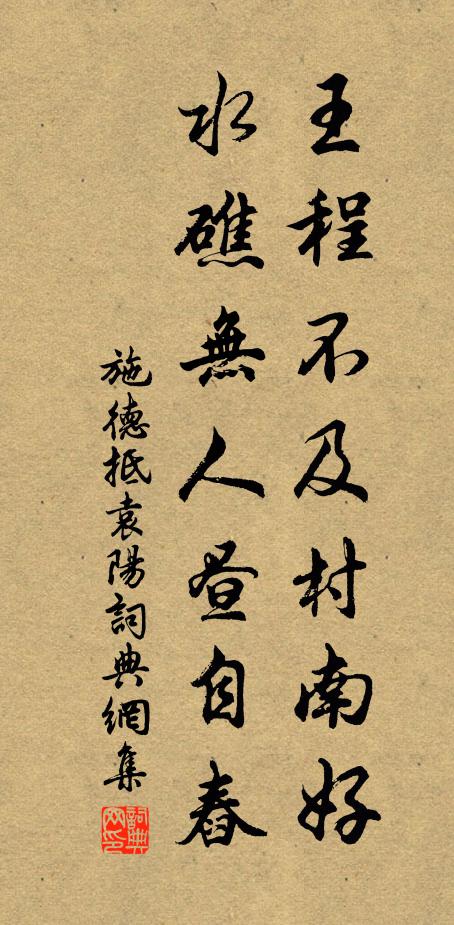 王程不及村南好
水礁無人晝自舂
施德抵袁陽詞典網集
詞典
网印